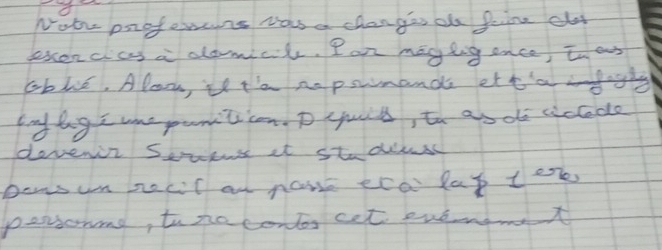 Notre professeurs vous a changés de faire des
exercices à domicile. Par négligence, tu as
oblié. Alors, il t'a reprimandé et t'a
infligé une punition. Depuis, tu as décidé de
devenir serieux et studieux
Dans un récit au passé et à la 1ere
personne, tu racontes cet evénement